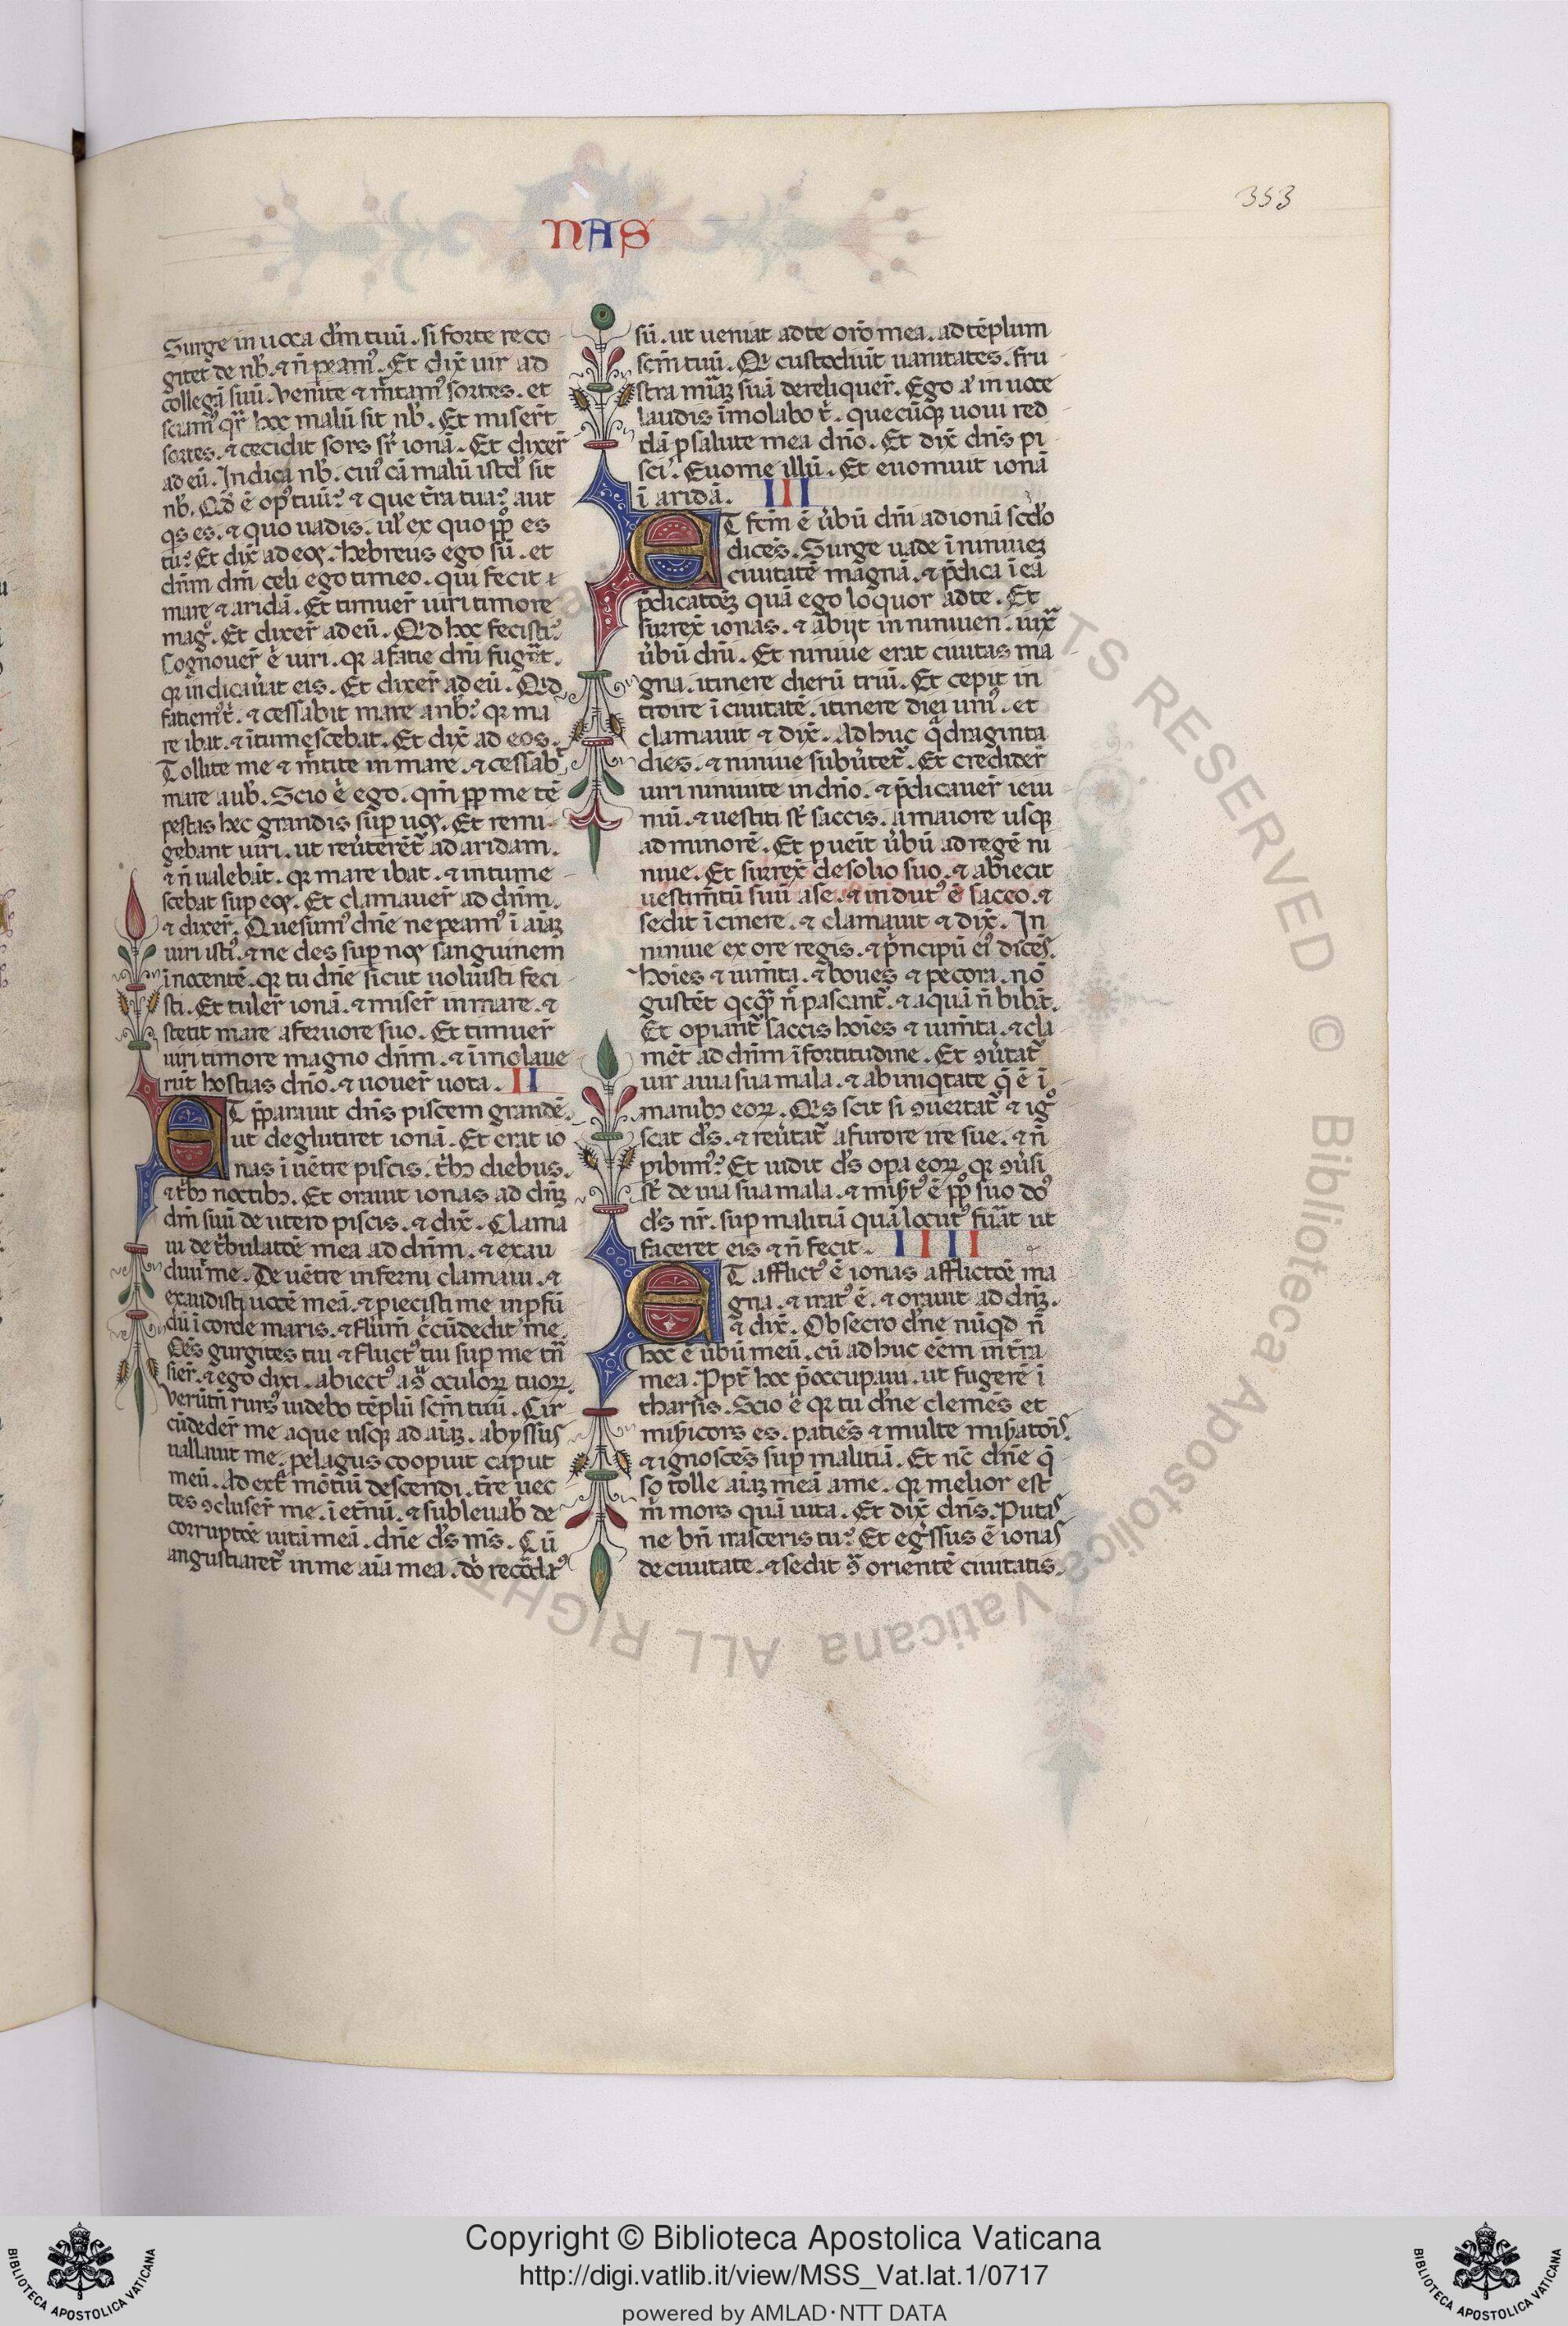 353
NAS
Surge in uoca dm̄ tuū. si forte reco
gitet̄ de nb̄. ⁊ n̄ peam⁹. Et dix̄ uir ad
collegā suū. Venite ⁊ mitam⁹ sortes. et
sciam⁹ qr̄ hoc malū sit nb̄. Et miser̄t
sortes. ⁊ cecidit sors sr̄ ionā. Et dixer̄
ad eū. Indica nb̄. cui⁹ cā malū istd̄ sit
nb̄. Qd̄ ē op⁹ tuū? ⁊ que tr̄a tua? aut
qs es. ⁊ quo uadis. ul̄ ex quo pp̄o es
tu? Et dix̄ ad eos. hebreus ego sū. et
dn̄m dm̄ celi ego timeo. qui fecit
mare ⁊ aridā. Et timuer̄ uiri timore
mag⁰. Et dixer̄ ad eū. Qd hoc fecisti?
Cognouer̄ .n. uiri. qr a facie dn̄i fuger̄t.
qr indicauat eis. Et dixer̄ ad eū. Qid
faciem⁹ t̄. ⁊ cessabit mare a nb̄? qr ma
re ibat. ⁊ ītumescebat. Et dix̄ ad eos.
Tollite me ⁊ mitite in mare. ⁊ cessab̄
mare a uob̄. Scio .n. ego. qm̄ pp̄ me tē
pestas hec grandis sup uos. Et remi
gebant uiri. ut reuterēt̄ ad aridam.
⁊ n̄ ualebāt. qr mare ibat. ⁊ intume
scebat sup eos. Et clamauer̄ ad dn̄m.
⁊ dixer̄. Quesum⁹ dn̄e ne peam⁹ ī aīaʒ
uiri isti⁹. ⁊ ne des sup nos sanguinem
īnocentē. qr tu dn̄e sicut uoluisti feci
sti. Et tuler̄ ionā. ⁊ miser̄ in mare. ⁊
stetit mare a feruore suo. Et timuer̄
uiri timore magno dn̄m. ⁊ īmolaue
rūt hostias dn̄o. ⁊ uouer̄ uota. II
ET p̄parauit dn̄s piscem grandē.
ut deglutiret ionā. Et erat io
nas ī uētre piscis. trib; diebus.
⁊ trib; noctib;. Et orauit ionas ad dn̄ʒ
dm̄ suū de utero piscis. ⁊ dix̄. Clama
ui de tribulatōe mea ad dn̄m. ⁊ exau
diuit me. De uētre inferni clamaui. ⁊
exaudisti uocē meā. ⁊ piecisti me in pfū
dū ī corde maris. ⁊ flum̄ circūdedit me.
Oēs gurgites tui ⁊ fluct⁹ tui sup me tn̄
sier̄. ⁊ ego dixi. abiect⁹ a ꝯ oculoꝝ tuoꝝ.
Verūtn̄ rurs⁹ uidebo tēplū scm̄ tuū. Cir
cūdeder̄ me aque usqꝫ ad aīaʒ. abyssus
uallauit me. pelagus coopuit caput
meū. Ad ext̄ mōtiū descendi. tr̄e uec
tes ꝯcluser̄ me. ī etn̄ū. ⁊ subleuab̄ de
corruptōe uitā meā. dn̄e ds̄ ms̄. Cū
angustiaret̄ in me aīa mea. dn̄i recordat⁹
sū. ut ueniat ad te orō mea. ad tēplum
scm̄ tuū. Qi custodiūt uanitates. fru
stra mīaʒ suā dereliquer̄. Ego aū in uoce
laudis īmolabo t̄. quecūqꝫ uoui red
dā p salute mea dn̄o. Et dix̄ dn̄s pi
sci. Euome illū. Et euomuit ionā
ī aridā. III
ET fcm̄ ē ūbū dn̄i ad ionā scdo
dicēs. Surge uade ī niniueʒ
ciuitatē magnā. ⁊ p̄dica ī ea
p̄dicatōeʒ quā ego loquor ad te. Et
surrex̄ ionas. ⁊ abijt in niniuen. iux̄
ūbū dn̄i. Et niniue erat ciuitas ma
gna. itinere dierū triū. Et cepit in
troire ī ciuitatē. itinere diei uni⁹. et
clamauit ⁊ dix̄. Ad huc q̄draginta
dies. ⁊ niniue subūtet̄. Et credider̄
uiri niniuite in dn̄o. ⁊ p̄dicauer̄ ieiu
niū. ⁊ uestiti st̄ saccis. a maiore usqꝫ
ad minorē. Et pueīt ūbū ad regē ni
niue. Et surrex̄ de solio suo. ⁊ abiecit
uestim̄tū suū a se. ⁊ indut⁹ ē sacco. ⁊
sedit ī cinere. ⁊ clamauit ⁊ dix̄. In
niniue ex ore regis. ⁊ p̄ncipū ei⁹ dicēs.
hoīes ⁊ ium̄ta. ⁊ boues ⁊ pecora. nō
gustēt qcq̄ n̄ pascant̄. ⁊ aquā n̄ bibāt.
Et opiant̄ saccis hoīes ⁊ ium̄ta. ⁊ cla
mēt ad dn̄m ī fortitudine. Et ꝯūtat̄
uir a uia sua mala. ⁊ ab iniqtate q̄ ē ī
manib; eoꝝ. Qis scit si ꝯuertat̄ ⁊ ig⁰
scat ds̄. ⁊ reūtat̄ a furore ire sue. ⁊ n̄
pibim⁹? Et uidit ds̄ opa eoꝝ qr ꝯūsi
st̄ de uia sua mala. ⁊ mis̄t⁹ ē pp̄o suo dn̄s
ds̄ nr̄. sup malitiā quā locut⁹ fuāt ut
faceret eis ⁊ n̄ fecit. IIII
ET afflict⁹ ē ionas afflictōe ma
gna. ⁊ irat⁹ ē. ⁊ orauit ad dn̄ʒ.
⁊ dix̄. Obsecro dn̄e nūqd n̄
hoc ē ūbū meū. cū ad huc eēm in tr̄a
mea. Ppt̄ hoc p̄occupaui. ut fugerē ī
tharsis. Scio .n. qr tu dn̄e clemēs et
mis̄icors es. patiēs ⁊ multe mis̄atōis.
⁊ ignoscēs sup malitiā. Et nc̄ dn̄e q̄
so tolle aīaʒ meā a me. qr melior est
m̄ mors quā uita. Et dix̄ dn̄s. Putas
ne bn̄ irasceris tu? Et eḡssus ē ionas
de ciuitate. ⁊ sedit ꝯ orientē ciuitatis.
Biblioteca Apostolica Vaticana ALL RIGHTS RESERVED ©
Copyright © Biblioteca Apostolica Vaticana
http://digi.vatlib.it/view/MSS_Vat.lat.1/0717
powered by AMLAD·NTT DATA
BIBLIOTECA APOSTOLICA VATICANA
BIBLIOTECA APOSTOLICA VATICANA